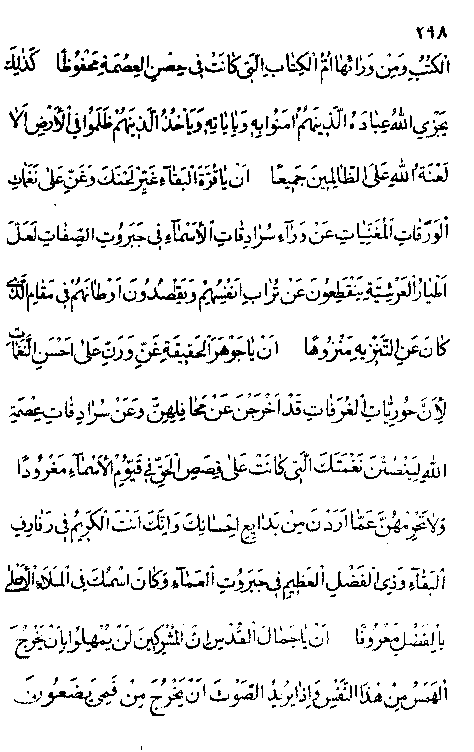 ٢٩٨
الكتب ومن ورائها ام الكتاب التى كانت فى حصن العصمة محفوظا كذلك
يجزى الله عباده الذينهم امنوا به وباياته وياخذ الذينهم ظلموا فى الارض الا
لعنة الله على الظالمين جميعا ان يا قرة البقاء غير لحنك وغن على نغمات
الورقات المغنيات عن وراء سرادقات الاسماء فى جبروت الصفات لعل
اطيار العرشية ينقطعون عن تراب انفسهم ويقصدون اوطانهم فى مقام الذى
كان عن التنزيه منزوها ان يا جوهر الحقيقة غن ورن على احسن النغمات
لان حوريات الغرفات قد اخرجن عن محافلهن وعن سرادقات عصمة
الله لينصتن نغمتك التى كانت على قصص الحق فى قيوم الاسماء مغرودا
ولا تحرمهن عما اردن من بدايع احسانك وانك انت الكريم فى رفارف
البقاء وذى الفضل العظيم فى جبروت العماء وكان اسمك فى الملاء الاعلى
بالفضل معروفا ان يا جمال القدس ان المشركين لن يمهلوا بان يخرج
الهمس من هذا النفس واذا يريد الصوت ان يخرج من فمى يضعون